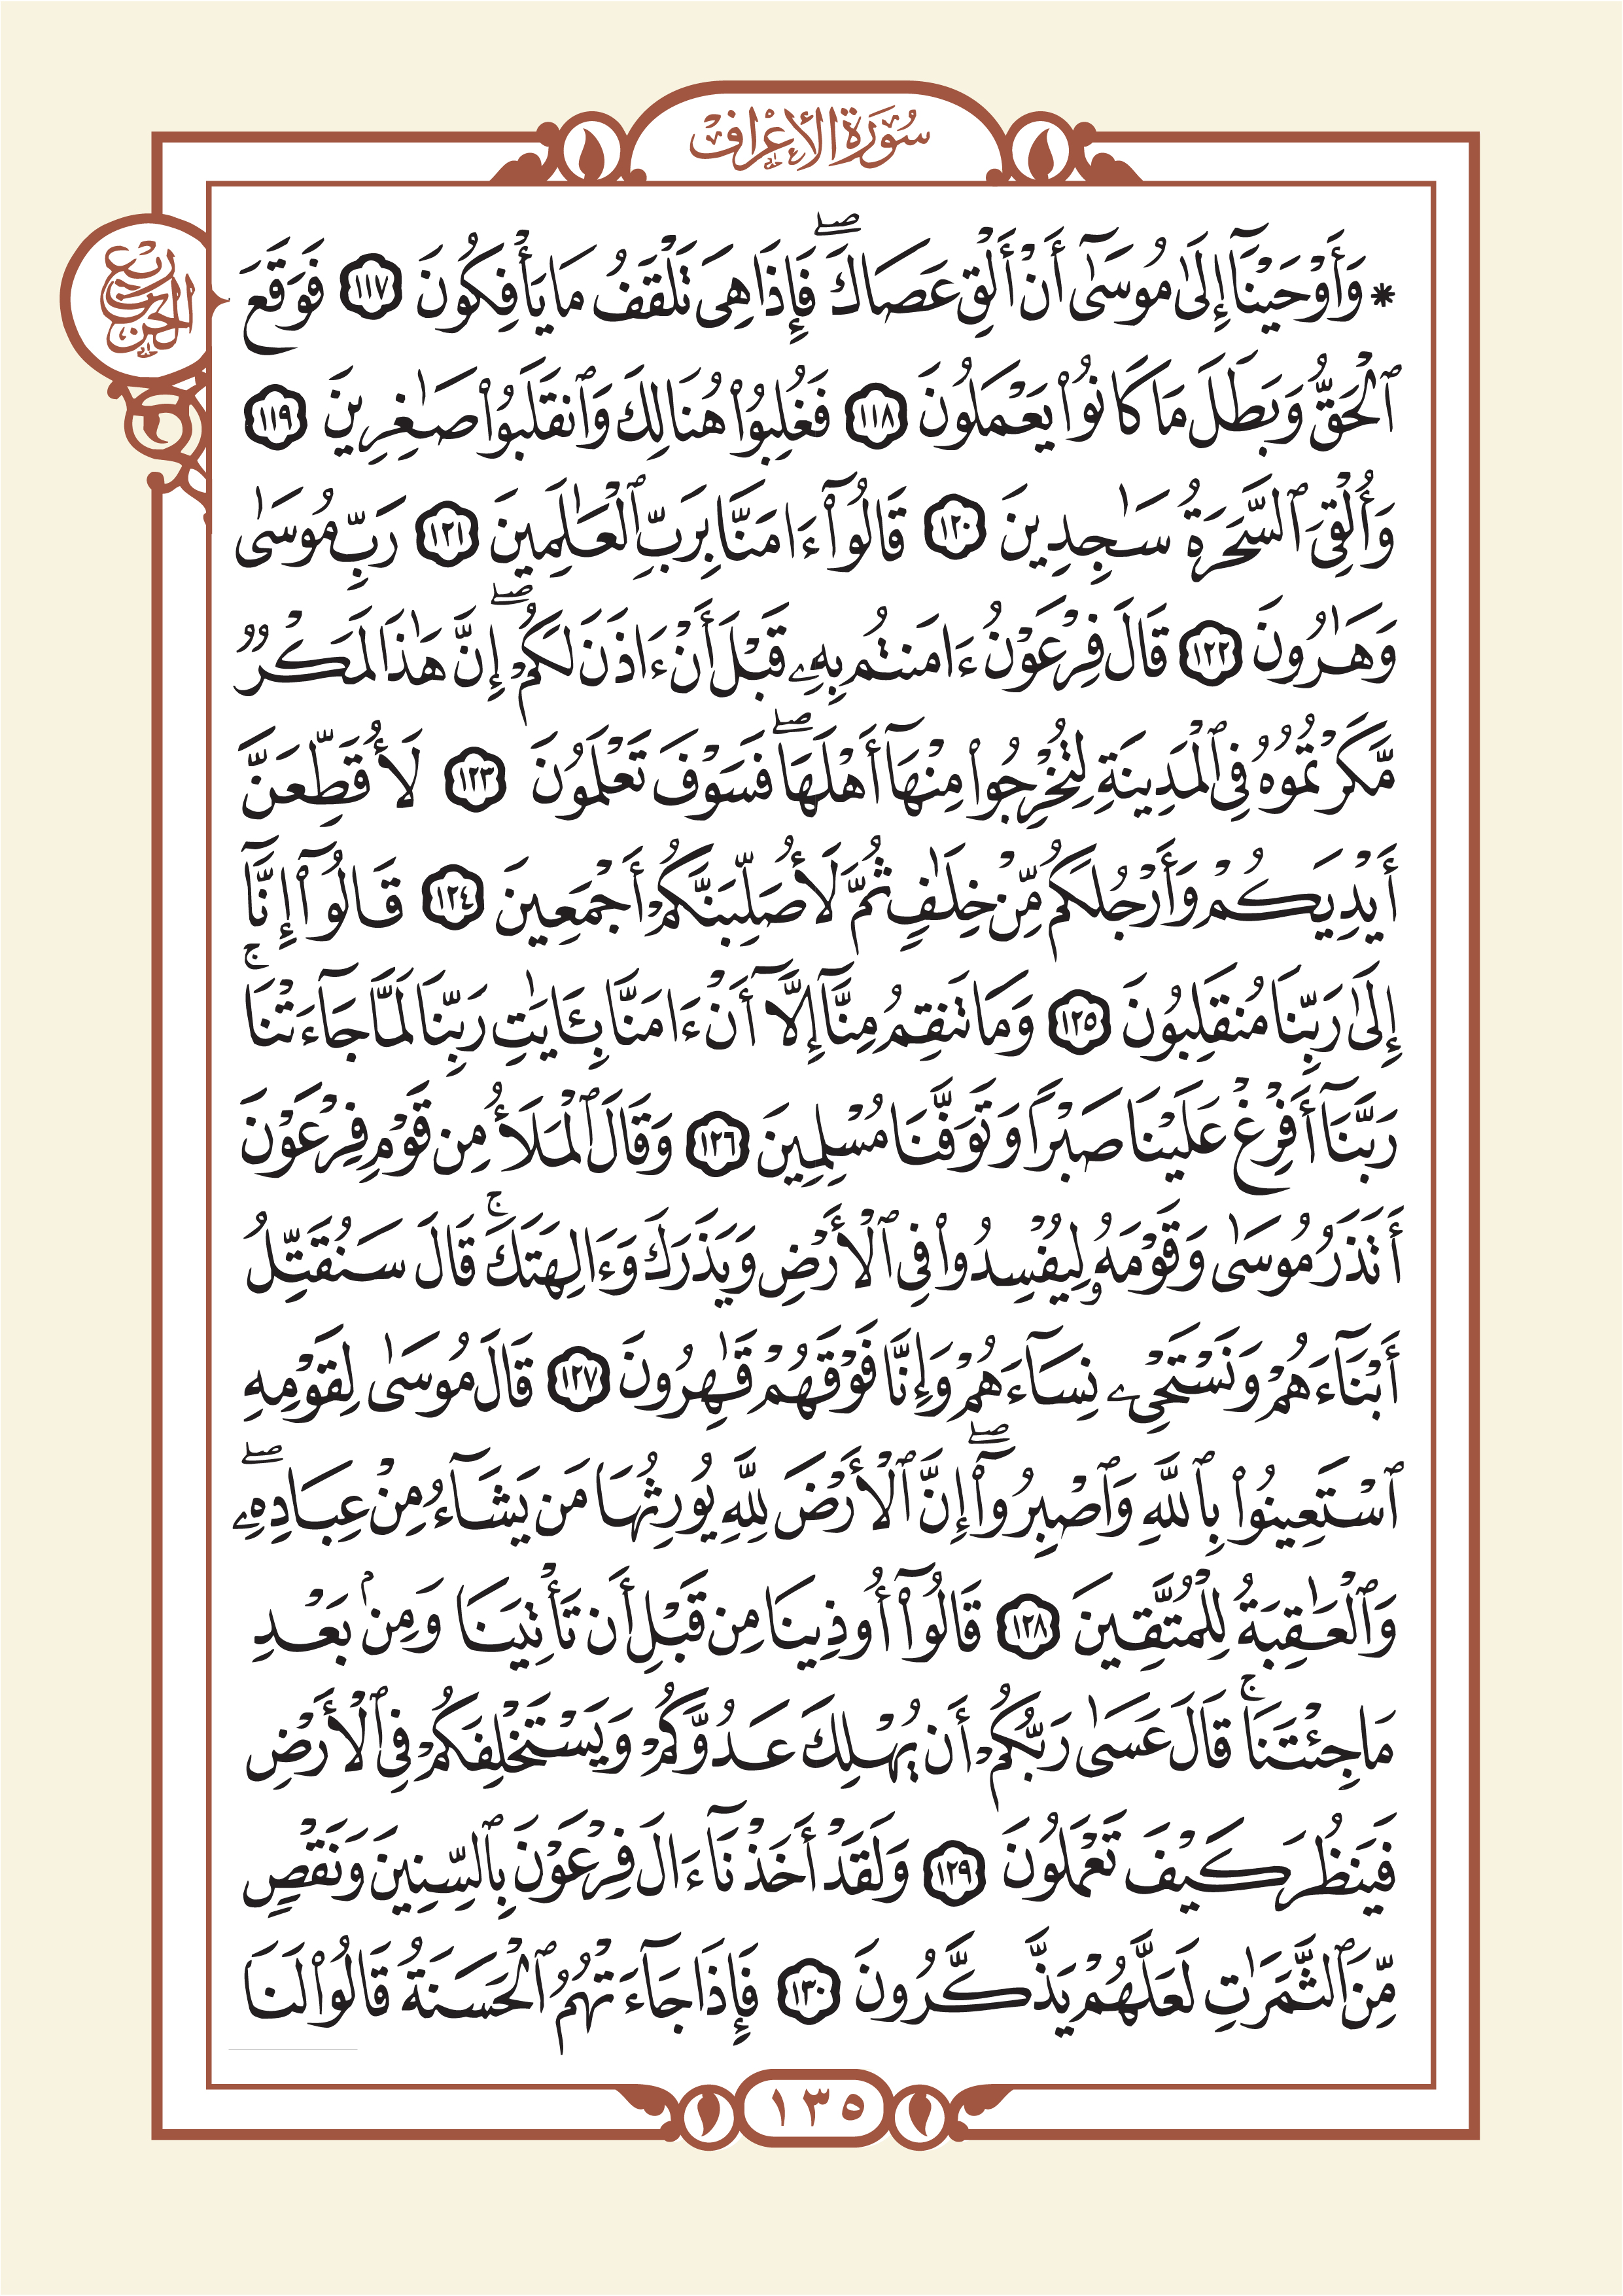 سُورَةُ الأَعْرَافِ
رُبْعُ الْحِزْبِ
* وَأَوْحَيْنَآ إِلَىٰ مُوسَىٰٓ أَنْ أَلْقِ عَصَاكَۖ فَإِذَا هِىَ تَلْقَفُ مَا يَأْفِكُونَ ١١٧ فَوَقَعَ
ٱلْحَقُّ وَبَطَلَ مَا كَانُوا۟ يَعْمَلُونَ ١١٨ فَغُلِبُوا۟ هُنَالِكَ وَٱنقَلَبُوا۟ صَٰغِرِينَ ١١٩
وَأُلْقِىَ ٱلسَّحَرَةُ سَٰجِدِينَ ١٢٠ قَالُوٓا۟ ءَامَنَّا بِرَبِّ ٱلْعَٰلَمِينَ ١٢١ رَبِّ مُوسَىٰ
وَهَٰرُونَ ١٢٢ قَالَ فِرْعَوْنُ ءَامَنتُم بِهِۦ قَبْلَ أَنْ ءَاذَنَ لَكُمْۖ إِنَّ هَٰذَا لَمَكْرٌ
مَّكَرْتُمُوهُ فِى ٱلْمَدِينَةِ لِتُخْرِجُوا۟ مِنْهَآ أَهْلَهَاۖ فَسَوْفَ تَعْلَمُونَ ١٢٣ لَأُقَطِّعَنَّ
أَيْدِيَكُمْ وَأَرْجُلَكُم مِّنْ خِلَٰفٍ ثُمَّ لَأُصَلِّبَنَّكُمْ أَجْمَعِينَ ١٢٤ قَالُوٓا۟ إِنَّآ
إِلَىٰ رَبِّنَا مُنقَلِبُونَ ١٢٥ وَمَا تَنقِمُ مِنَّآ إِلَّآ أَنْ ءَامَنَّا بِـَٔايَٰتِ رَبِّنَا لَمَّا جَآءَتْنَاۚ
رَبَّنَآ أَفْرِغْ عَلَيْنَا صَبْرًا وَتَوَفَّنَا مُسْلِمِينَ ١٢٦ وَقَالَ ٱلْمَلَأُ مِن قَوْمِ فِرْعَوْنَ
أَتَذَرُ مُوسَىٰ وَقَوْمَهُۥ لِيُفْسِدُوا۟ فِى ٱلْأَرْضِ وَيَذَرَكَ وَءَالِهَتَكَۚ قَالَ سَنُقَتِّلُ
أَبْنَآءَهُمْ وَنَسْتَحْىِۦ نِسَآءَهُمْ وَإِنَّا فَوْقَهُمْ قَٰهِرُونَ ١٢٧ قَالَ مُوسَىٰ لِقَوْمِهِ
ٱسْتَعِينُوا۟ بِٱللَّهِ وَٱصْبِرُوٓا۟ۖ إِنَّ ٱلْأَرْضَ لِلَّهِ يُورِثُهَا مَن يَشَآءُ مِنْ عِبَادِهِۦۖ
وَٱلْعَٰقِبَةُ لِلْمُتَّقِينَ ١٢٨ قَالُوٓا۟ أُوذِينَا مِن قَبْلِ أَن تَأْتِيَنَا وَمِنۢ بَعْدِ
مَا جِئْتَنَاۚ قَالَ عَسَىٰ رَبُّكُمْ أَن يُهْلِكَ عَدُوَّكُمْ وَيَسْتَخْلِفَكُمْ فِى ٱلْأَرْضِ
فَيَنظُرَ كَيْفَ تَعْمَلُونَ ١٢٩ وَلَقَدْ أَخَذْنَآ ءَالَ فِرْعَوْنَ بِٱلسِّنِينَ وَنَقْصٍ
مِّنَ ٱلثَّمَرَٰتِ لَعَلَّهُمْ يَذَّكَّرُونَ ١٣٠ فَإِذَا جَآءَتْهُمُ ٱلْحَسَنَةُ قَالُوا۟ لَنَا
١٣٥